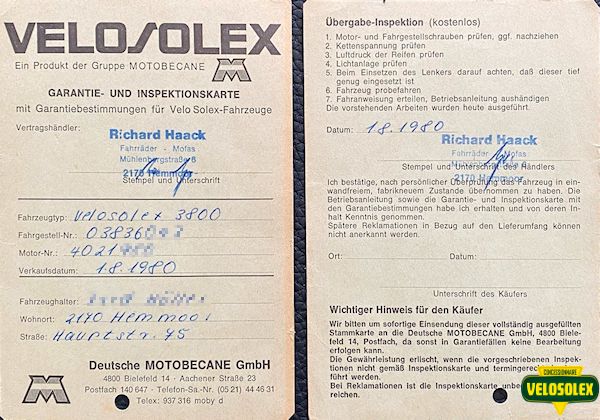 VELOSOLEX
Ein Produkt der Gruppe MOTOBECANE
M
GARANTIE- UND INSPEKTIONSKARTE
mit Garantiebestimmungen für Velo Solex-Fahrzeuge
Vertragshändler:
Richard Haack
Fahrräder - Mofas
Mühlenbergstraße 6
2170 Hemmoor
Stempel und Unterschrift
Fahrzeugtyp: Velosolex 3800
Fahrgestell-Nr.: 03836
Motor-Nr.: 4021
Verkaufsdatum: 1.8.1980
Fahrzeughalter:
Wohnort: 2170 Hemmoor
Straße: Hauptstr. 45
M
Deutsche MOTOBECANE GmbH
4800 Bielefeld 14 - Aachener Straße 23
Postfach 140 647 - Telefon-Sa.-Nr. (05 21) 4 46 31
Telex: 937 316 moby d
Übergabe-Inspektion (kostenlos)
1. Motor- und Fahrgestellschrauben prüfen, ggf. nachziehen
2. Kettenspannung prüfen
3. Luftdruck der Reifen prüfen
4. Lichtanlage prüfen
5. Beim Einsetzen des Lenkers darauf achten, daß dieser tief
genug eingesetzt ist
6. Fahrzeug probefahren
7. Fahranweisung erteilen, Betriebsanleitung aushändigen
Die vorstehenden Arbeiten wurden heute ausgeführt.
Datum: 1.8.1980
Richard Haack
Fahrräder - Mofas
Mühlenbergstraße 6
2170 Hemmoor
Stempel und Unterschrift des Händlers
Ich bestätige, nach persönlicher Überprüfung das Fahrzeug in ein-
wandfreiem, fabrikneuem Zustande übernommen zu haben. Die
Betriebsanleitung sowie die Garantie- und Inspektionskarte mit
den Garantiebestimmungen habe ich erhalten und von deren In-
halt Kenntnis genommen.
Spätere Reklamationen in Bezug auf den Lieferumfang können
nicht anerkannt werden.
Ort: Datum:
Unterschrift des Käufers
Wichtiger Hinweis für den Käufer
Wir bitten um sofortige Einsendung dieser vollständig ausgefüllten
Stammkarte an die Deutsche MOTOBECANE GmbH, 4800 Biele-
feld 14, Postfach, da sonst in Garantiefällen keine Bearbeitung
erfolgen kann.
Die Gewährleistung erlischt, wenn die vorgeschriebenen Inspek-
tionen nicht gemäß Inspektionskarte und termingerec
führt werden.
Bei Reklamationen ist die Inspektionskarte unbe
reichen.
CONCESSIONNAIRE
VELOSOLEX